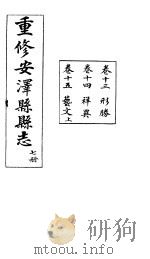 重修安澤縣縣志 七册
卷十三 形勝
卷十四 祥異
卷十五 藝文上
www.yanfabook.com